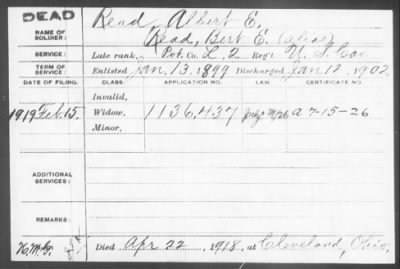 DEAD
NAME OF SOLDIER: Read, Albert E.
(Read, Bert E. (alias)
SERVICE: Late rank, Pvt. Co. L, 2 Reg't U. S. Cav
TERM OF SERVICE: Enlisted Jan. 13. 1899 Discharged Jan 12. 1902.
DATE OF FILING. CLASS. APPLICATION NO. CERTIFICATE NO.
Invalid,
1919 Feb. 15. Widow, 1136,437 a 7-15-26
Minor,
ADDITIONAL SERVICES:
REMARKS:
Died Apr. 22, 1918, at Cleveland, Ohio.